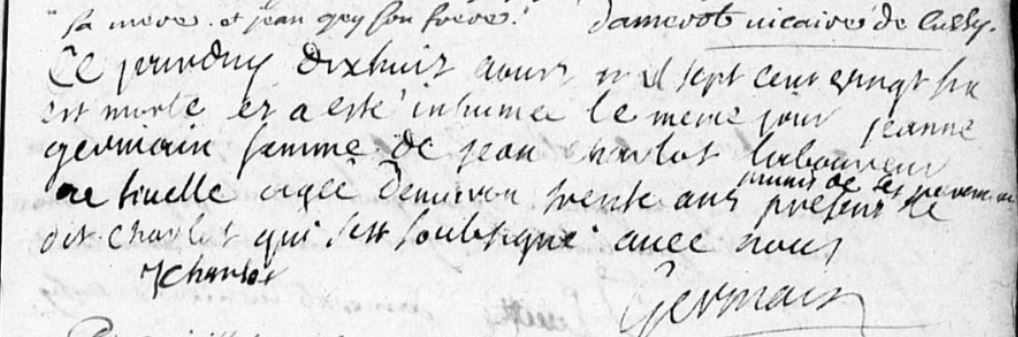 sa mere. et jean gey son frere. Damerot vicaire de Cussy.
Ce jourduy dixhuit aoust mil sept cent vingt six
est morte et a esté inhumée le meme jour jeanne
germain femme de jean charlot laboureur
de tivelle agée denviron trente ans munie de ses sacremens présent le
dit charlot qui sest soubsigné avec nous
J Charlot
Germain